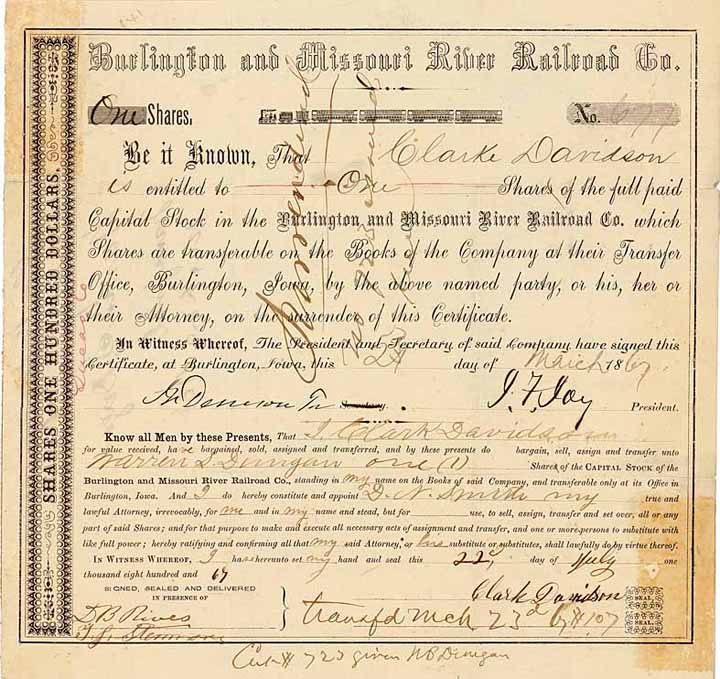 Burlington and Missouri River Railroad Co.
One Shares, No. 677
Be it Known, That Clarke Davidson
is entitled to One Shares of the full paid
Capital Stock in the Burlington and Missouri River Railroad Co. which
Shares are transferable on the Books of the Company at their Transfer
Office, Burlington, Iowa, by the above named party, or his, her or
their Attorney, on the surrender of this Certificate.
In Witness Whereof, The President and Secretary of said Company have signed this
Certificate, at Burlington, Iowa, this day of March 1867.
J. F. Joy President.
SHARES ONE HUNDRED DOLLARS.
Surrendered
Know all Men by these Presents, That I Clark Davidson
for value received, have bargained, sold, assigned and transferred, and by these presents do bargain, sell, assign and transfer unto
Warren S. Dungan one (1) Shares of the CAPITAL STOCK of the
Burlington and Missouri River Railroad Co., standing in my name on the Books of said Company, and transferable only at its Office in
Burlington, Iowa. And I do hereby constitute and appoint D. N. Smith my true and
lawful Attorney, irrevocably, for me and in my name and stead, but for use, to sell, assign, transfer and set over, all or any
part of said Shares; and for that purpose to make and execute all necessary acts of assignment and transfer, and one or more persons to substitute with
like full power; hereby ratifying and confirming all that my said Attorney, or his substitute or substitutes, shall lawfully do by virtue thereof.
IN WITNESS WHEREOF, I has hereunto set my hand and seal this 22d, day of July one
thousand eight hundred and 67
SIGNED, SEALED AND DELIVERED
IN PRESENCE OF
Clark Davidson SEAL.
D B Rives
transfd Mch 23d 67 # 107 SEAL.
Cert # 723 given W S Dungan